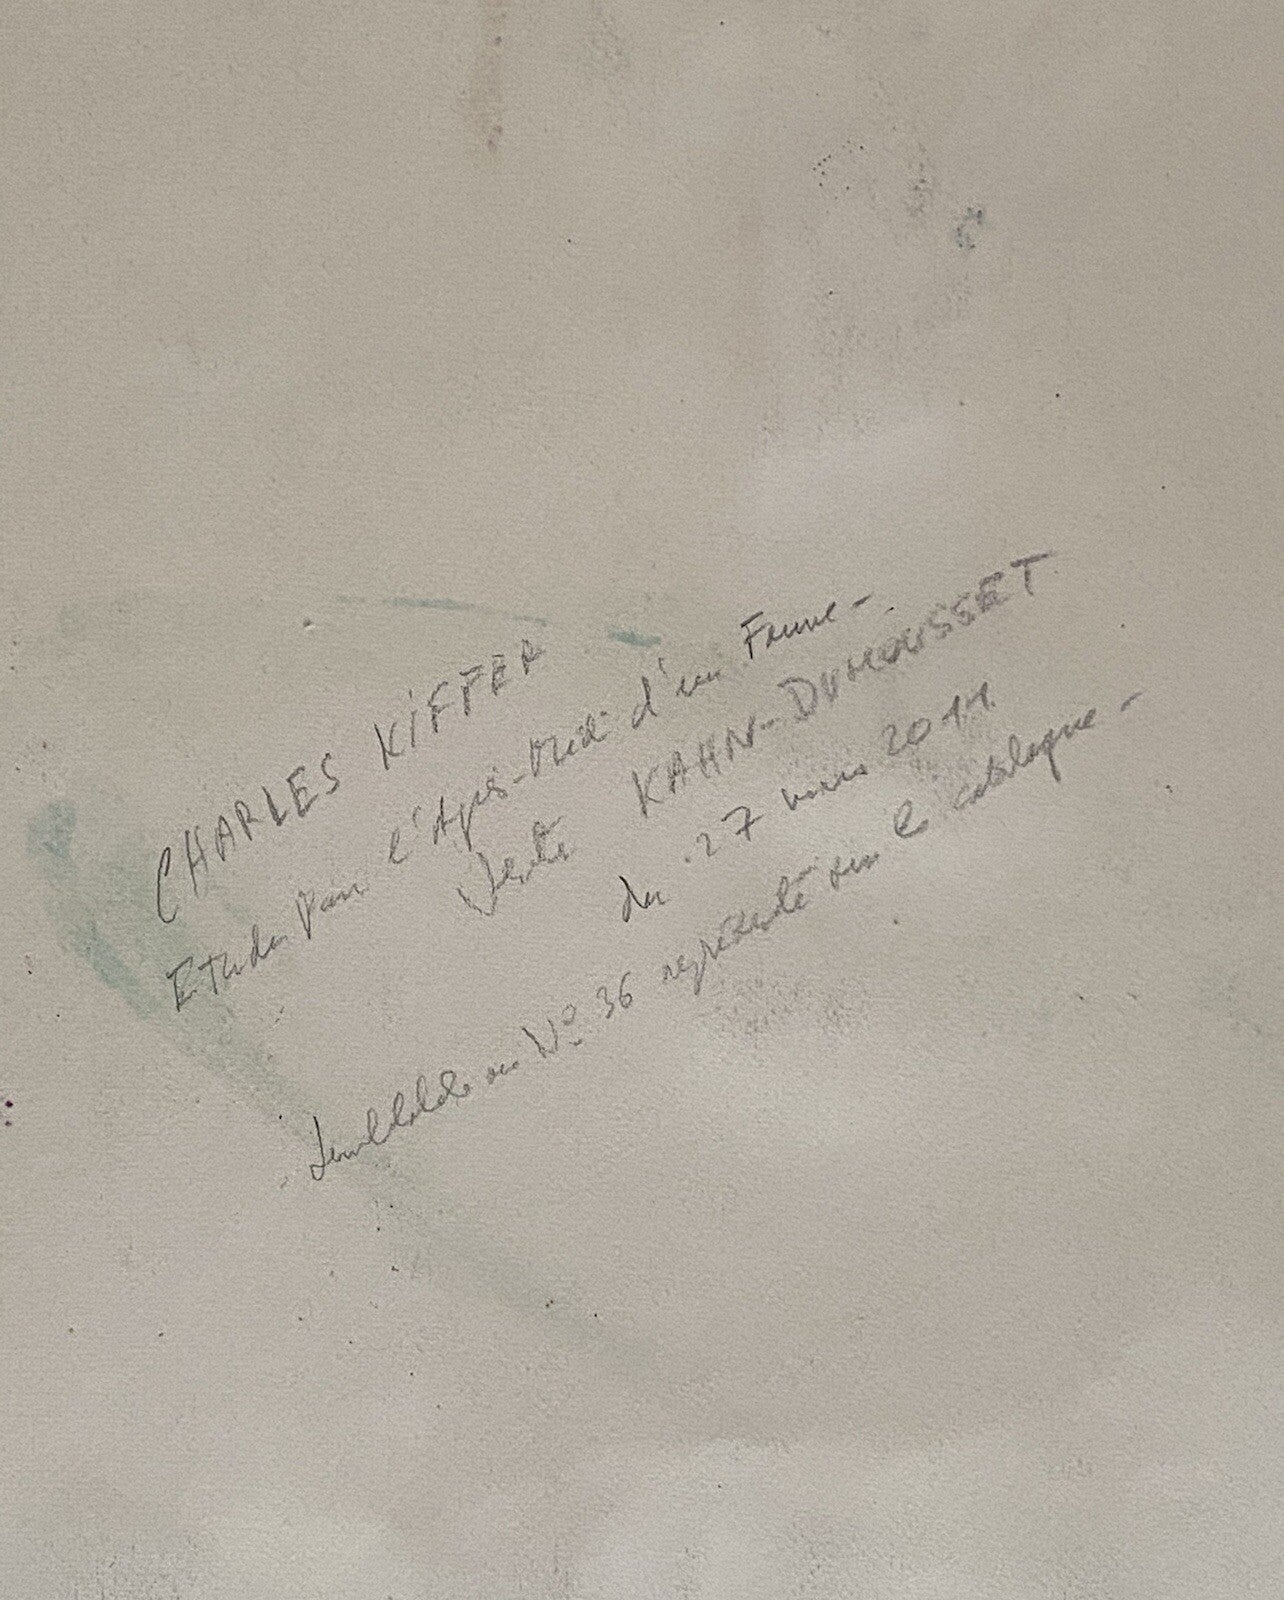 CHARLES KIFFER
Etude pour l'Après-Midi d'un Faune -
Vente KAHN-DUMOUSSET
du 27 mars 2011
- Semblable au Nº 36 représenté sur le catalogue -